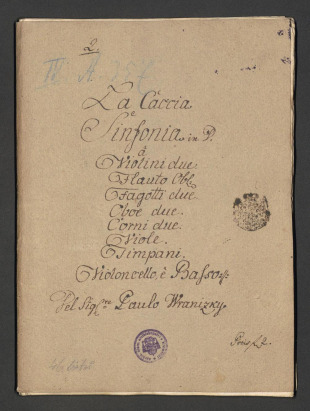 2.
La Caccia
e
Sinfonia in D.
á
Violini due.
Flauto Oblg
Fagotti due
Oboe due.
Corni due.
Viole.
Timpani.
Violoncello, è Basso
Del Sigre Paulo Wranizky